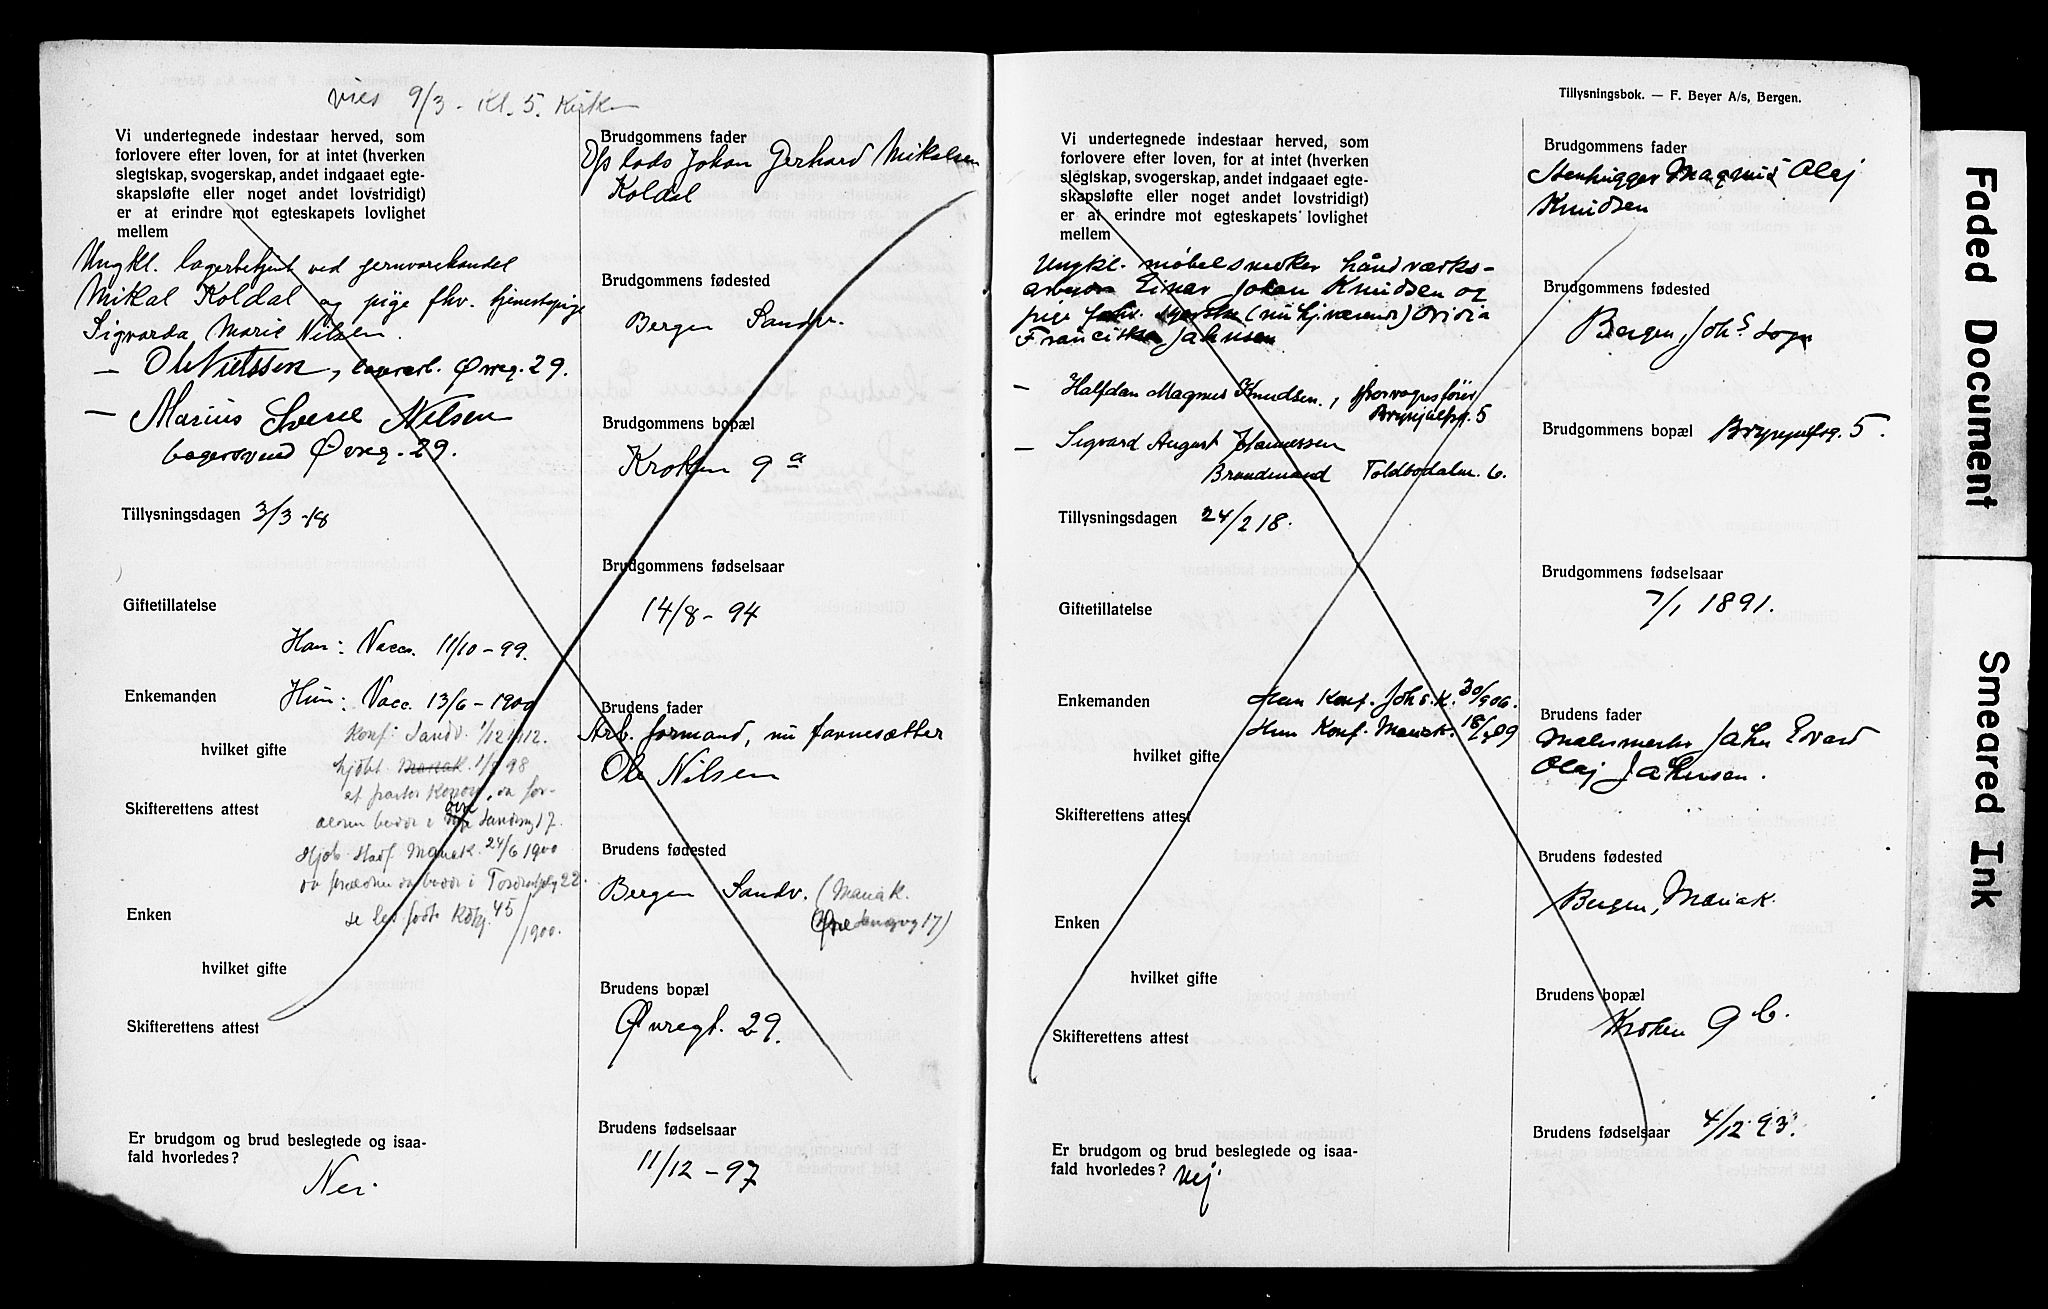 vies 9/3 - Kl. 5. Kirken
Vi undertegnede indestaar herved, som
forlovere efter loven, for at intet (hverken
slegtskap, svogerskap, andet indgaaet egte-
skapsløfte eller noget andet lovstridigt)
er at erindre mot egteskapets lovlighet
mellem
Ungkl. lagerbetjent ved jernvarehandel
Mikal Koldal og pige fhv. tjenestepige
Sigvarda Marie Nilsen.
— Ole Nielssen, Øvreg. 29.
— Marius Sverre Nilsen
bagersvend Øvreg. 29.
Tillysningsdagen 3/3-18
Giftetillatelse
Han: Vacc. 11/10-99.
Enkemanden Hun: Vacc. 13/6-1900
Konf. Sandv. 1/12 1912.
hvilket gifte
hjdbt Mariak. 1/98
Skifterettens attest
af pastor
Sandsvg 17.
Hjdb. Stadf. Mariak. 24/6 1900
22.
Enken
se les fødte Kbkg. 45/1900.
hvilket gifte
Skifterettens attest
Er brudgom og brud beslegtede og isaa-
fald hvorledes?
Nei.
Brudgommens fader
Opslads Johan Gerhard Mikalsen
Koldal
Brudgommens fødested
Bergen Sandv.
Brudgommens bopæl
Kroken 9 a
Brudgommens fødselsaar
14/8-94
Brudens fader
Arb. formand, nu favnesætter
Ole Nilsen
Brudens fødested
Bergen Sandv. (Mariak.
17)
Brudens bopæl
Øvregt. 29.
Brudens fødselsaar
11/12-97
Tillysningsbok. — F. Beyer A/s, Bergen.
Vi undertegnede indestaar herved, som
forlovere efter loven, for at intet (hverken
slegtskap, svogerskap, andet indgaaet egte-
skapsløfte eller noget andet lovstridigt)
er at erindre mot egteskapets lovlighet
mellem
Ungkl. møbelsnedker håndværks-
arbeider Einar Johan Knudsen og
pige (nu hj.værende) Ovidia
Franciska Jahnsen
— Halfdan Magnus Knudsen, sporvognsfører
Brynjulfsg. 5
— Sigvard August Hannessen
Brandmand Toldbodalm. 6.
Tillysningsdagen 24/2 18.
Giftetillatelse
Enkemanden Han Konf. Johs. K. 30/9 06.
Hun Konf. Mariak. 18/09
hvilket gifte
Skifterettens attest
Enken
hvilket gifte
Skifterettens attest
Er brudgom og brud beslegtede og isaa-
fald hvorledes? Nej.
Brudgommens fader
Stenhugger Magnus Olaj
Knudsen
Brudgommens fødested
Bergen, Johs sogn
Brudgommens bopæl Brynjulfsg. 5.
Brudgommens fødselsaar
7/1 1891.
Brudens fader
Malermester Jahn Evard
Olaj Jahnsen.
Brudens fødested
Bergen, Mariak.
Brudens bopæl
Kroken 9 b.
Brudens fødselsaar 4/12 93.
Faded Document
Smeared Ink